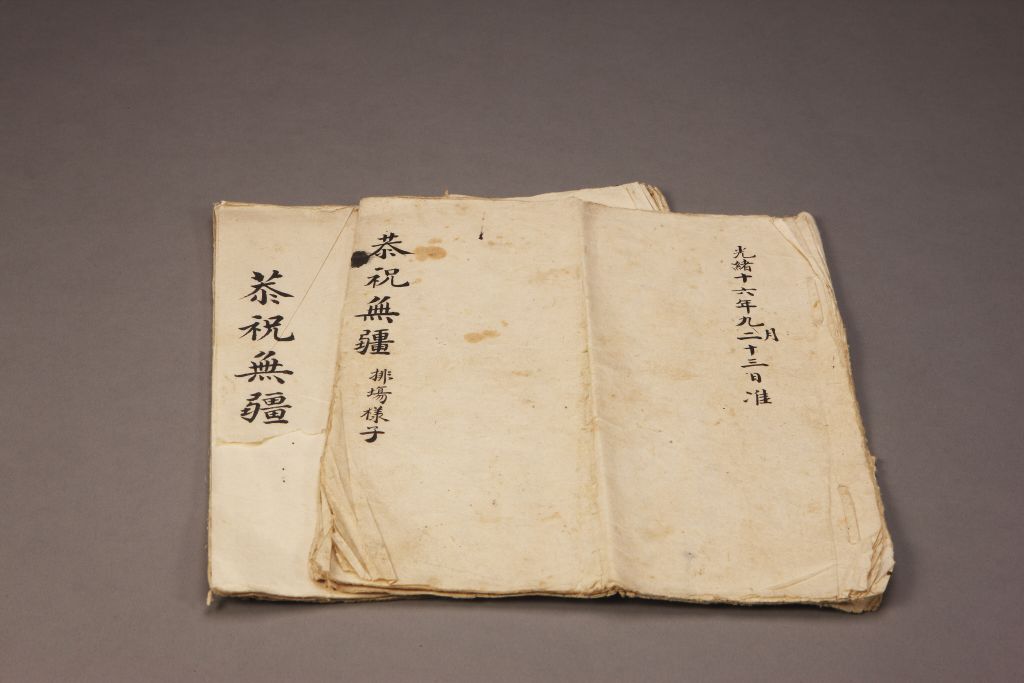 恭祝無疆
恭祝無疆排場樣子
光緒十六年九月二十三日准